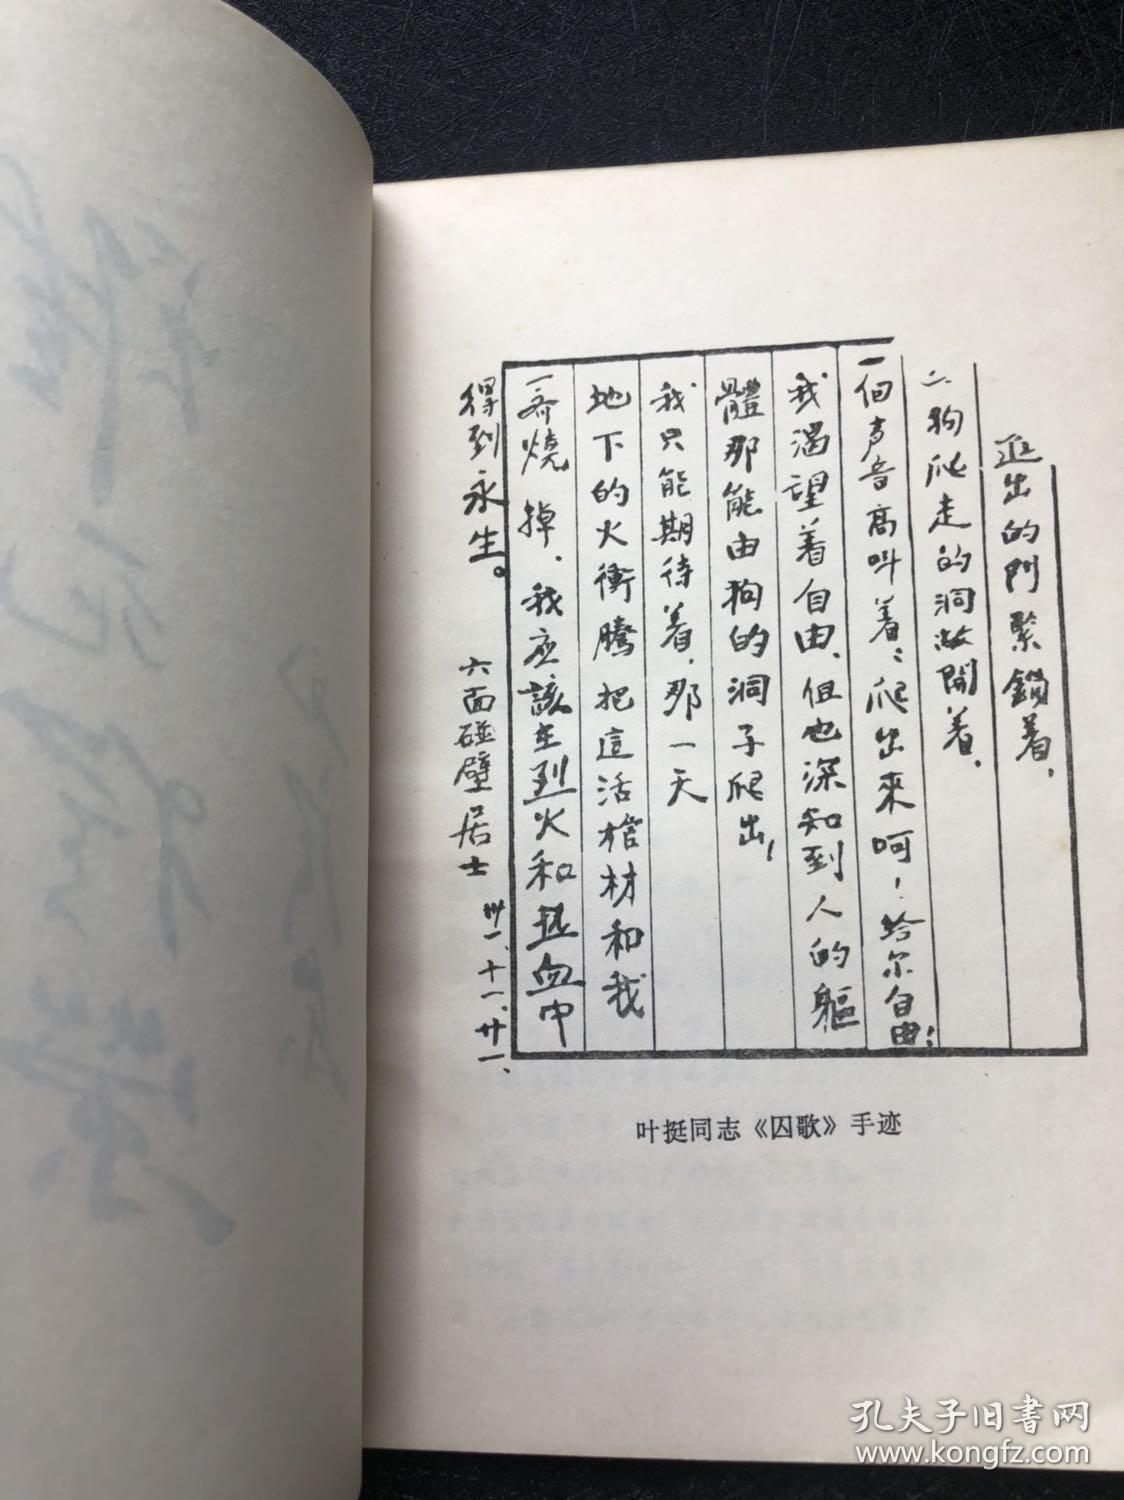 進出的門緊鎖着，
二、狗爬走的洞敞開着，
一個声音高叫着：爬出來呵！给尔自由！
我渴望着自由，但也深知到人的軀
體那能由狗的洞子爬出，
我只能期待着，那一天
地下的火衝騰把這活棺材和我
一齊燒掉，我应該在烈火和熱血中
得到永生。
六面碰壁居士
卅一、十一、廿一、
叶挺同志《囚歌》手迹
孔夫子旧書网
www.kongfz.com